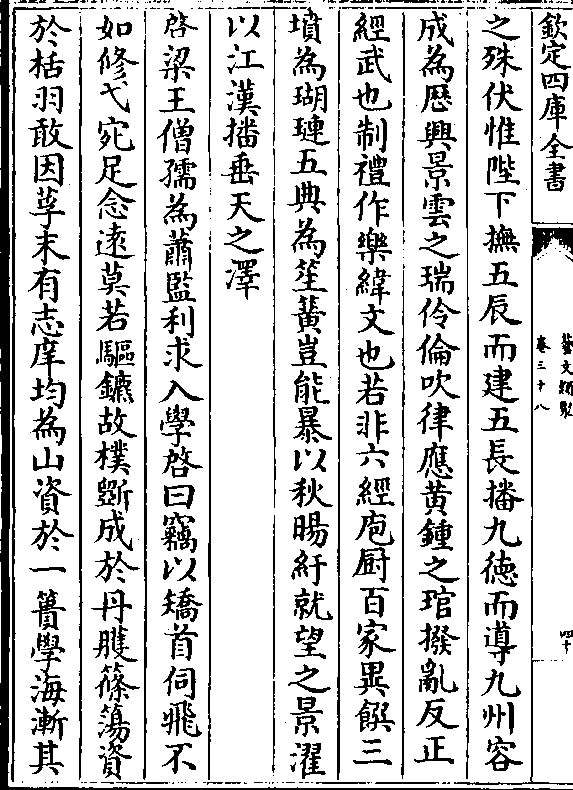 欽定四庫全書
藝文類聚
卷三十八
四十
之殊伏惟陛下撫五辰而建五長播九德而導九州容
成為厯興景雲之瑞伶倫吹律應黄鍾之琯撥亂反正
經武也制禮作樂緯文也若非六經庖厨百家異饌三
墳為瑚璉五典為笙簧豈能暴以秋暘紆就望之景濯
以江漢播垂天之澤
啓梁王僧孺為蕭監利求入學啓曰竊以矯首伺飛不
如修弋宛足念遠莫若驅鑣故樸斲成於丹雘篠簜資
於栝羽敢因莩末有志庠均為山資於一簣學海漸其